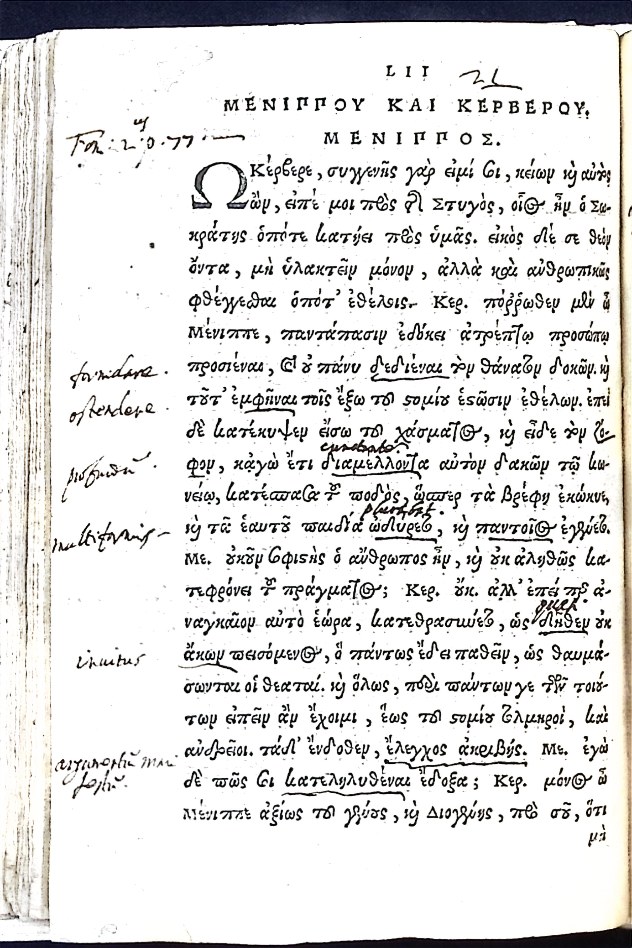 LII 21
ΜΕΝΙΠΠΟΥ ΚΑΙ ΚΕΡΒΕΡΟΥ.
ΜΕΝΙΠΠΟΣ.
Ὦ Κέρβερε, συγγενὴς γάρ εἰμί σοι, κύων καὶ αὐτὸς
ὢν, εἰπέ μοι πρὸς τῆς Στυγὸς, οἷος ἦν ὁ Σω-
κράτης ὁπότε κατῄει πρὸς ὑμᾶς. εἰκὸς δέ σε θεὸν
ὄντα, μὴ ὑλακτεῖν μόνον, ἀλλὰ καὶ ἀνθρωπικῶς
φθέγγεσθαι ὁπότ' ἐθέλοις. Κερ. πόῤῥωθεν μὲν ὦ
Μένιππε, παντάπασιν ἐδόκει ἀτρέπτῳ προσώπῳ
προσιέναι, καὶ οὐ πάνυ δεδιέναι τὸν θάνατον δοκῶν. καὶ
formidare.
τοῦτ' ἐμφῆναι τοῖς ἔξω τοῦ στομίου ἑστῶσιν ἐθέλων. ἐπεὶ
ostendere.
δὲ κατέκυψεν εἴσω τοῦ χάσματος, καὶ εἶδε τὸν ζό-
φον, κἀγὼ ἔτι διαμέλλοντα αὐτὸν δακὼν τῷ κω-
νείῳ, κατέσπασα τοῦ ποδὸς, ὥσπερ τὰ βρέφη ἐκώκυε,
καὶ τὰ ἑαυτοῦ παιδία ὠδύρετο, καὶ παντοῖος ἐγένετο.
multiformis
Με. οὐκοῦν σοφιστὴς ὁ ἄνθρωπος ἦν, καὶ οὐκ ἀληθῶς κα-
τεφρόνει τοῦ πράγματος; Κερ. οὔκ. ἀλλ' ἐπείπερ ἀ-
ναγκαῖον αὐτὸ ἑώρα, κατεθρασύνετο, ὡς δῆθεν οὐκ
ἄκων πεισόμενος, ὃ πάντως ἔδει παθεῖν, ὡς θαυμά-
inuitus
σωνται οἱ θεαταί. καὶ ὅλως, περὶ πάντων γε τῶν τοιού-
των εἰπεῖν ἂν ἔχοιμι, ἕως τοῦ στομίου τολμηροὶ, καὶ
ἀνδρεῖοι. τὰ δ' ἔνδοθεν, ἔλεγχος ἀκριβής. Με. ἐγὼ
δὲ πῶς σοι κατεληλυθέναι ἔδοξα; Κερ. μόνος ὦ
Μένιππε ἀξίως τοῦ γένους, καὶ Διογένης, πρὸ σοῦ, ὅτι
μὴ